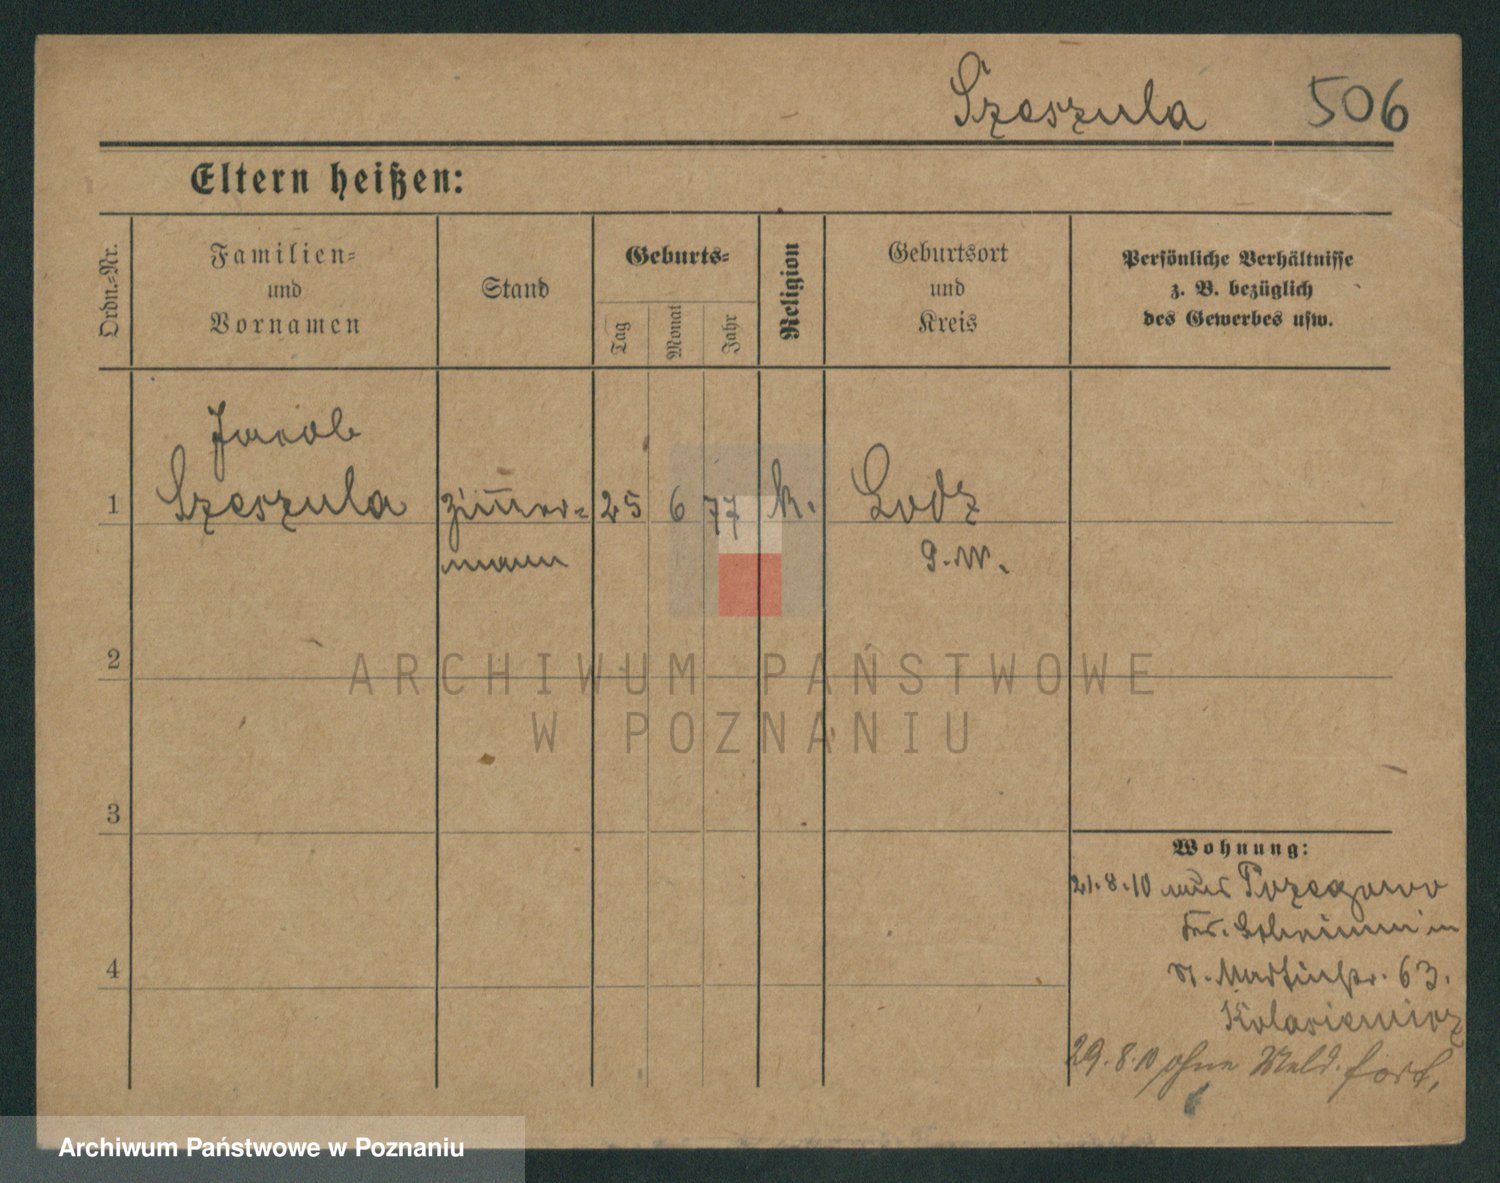 Szeszula 506
Eltern heißen:
Ordn.-Nr.
Familien-
und
Vornamen
Stand
Geburts-
Tag
Monat
Jahr
Religion
Geburtsort
und
Kreis
Persönliche Verhältnisse
z. B. bezüglich
des Gewerbes usw.
Jacob
1 Szeszula Zimmer- 25 6 77 k. Lodz
mann
2
ARCHIWUM PAŃSTWOWE
W POZNANIU
3
4
Wohnung:
21.8.10 aus
in
St. Martinstr. 63.
Kolasiewicz
29.8.10 ohne Meld. fort.
Archiwum Państwowe w Poznaniu